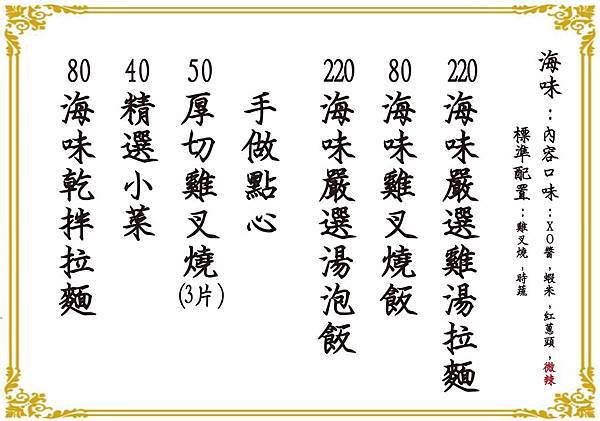 海味：內容口味：XO醬，蝦米，紅蔥頭，微辣
標準配置：雞叉燒，時蔬
220 海味嚴選雞湯拉麵
80 海味雞叉燒飯
220 海味嚴選湯泡飯
手做點心
50 厚切雞叉燒(3片)
40 精選小菜
80 海味乾拌拉麵